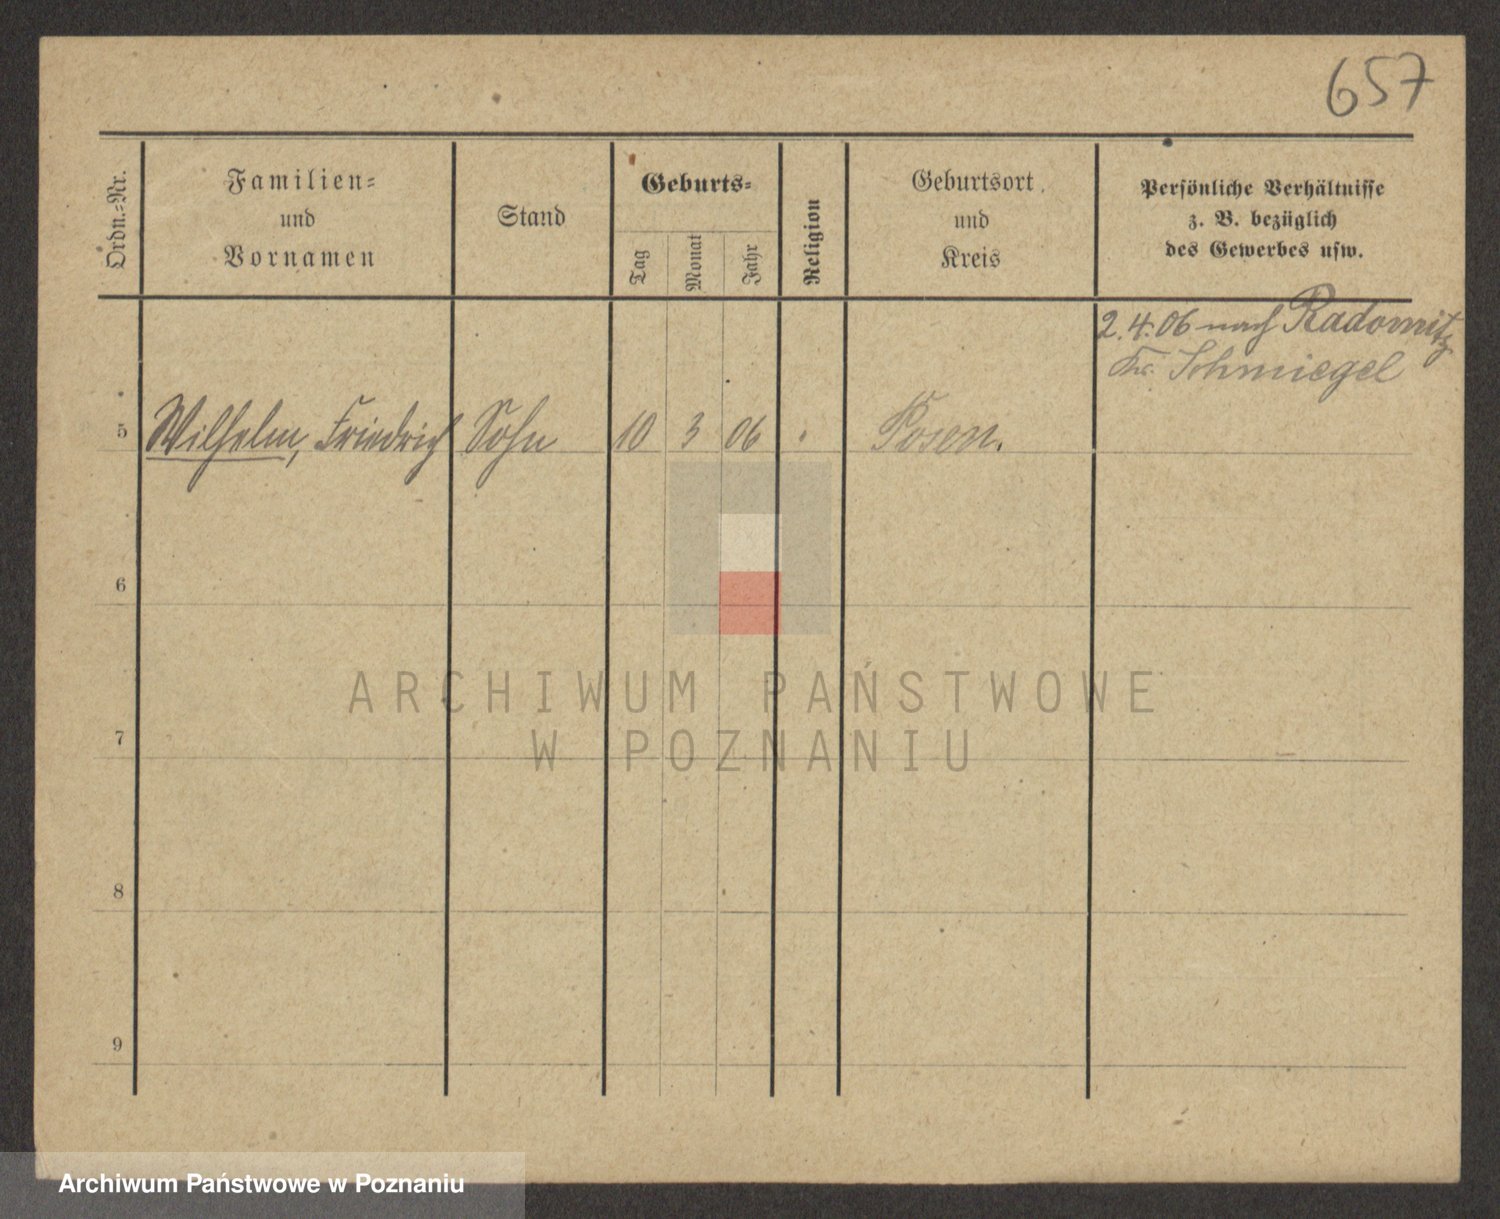 657
Ordn.-Nr.
Familien-
und
Vornamen
Stand
Geburts-
Tag
Monat
Jahr
Religion
Geburtsort
und
Kreis
Persönliche Verhältnisse
z. B. bezüglich
des Gewerbes usw.
2.4.06 nach Radomitz
Kr. Schmiegel
5 Wilhelm, Friedrich Sohn 10 3 06 Posen.
6
7
8
9
ARCHIWUM PAŃSTWOWE
W POZNANIU
Archiwum Państwowe w Poznaniu